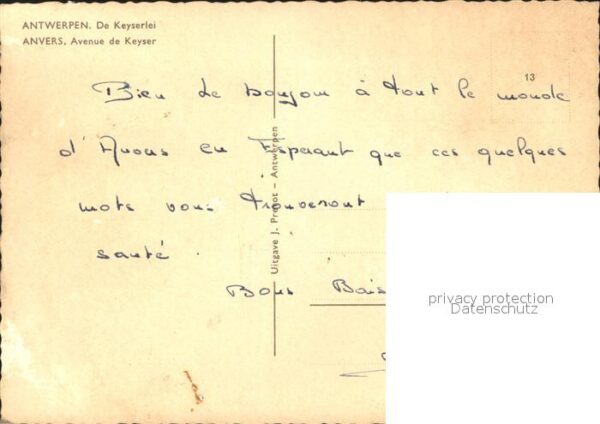 ANTWERPEN. De Keyserlei
ANVERS. Avenue de Keyser
13
Bien le bonjour à tout le monde
d'Anvers en Esperant que ces quelques
mots vous trouveront
santé.
Bons Bais
Uitgave J. Prévot - Antwerpen
privacy protection
Datenschutz